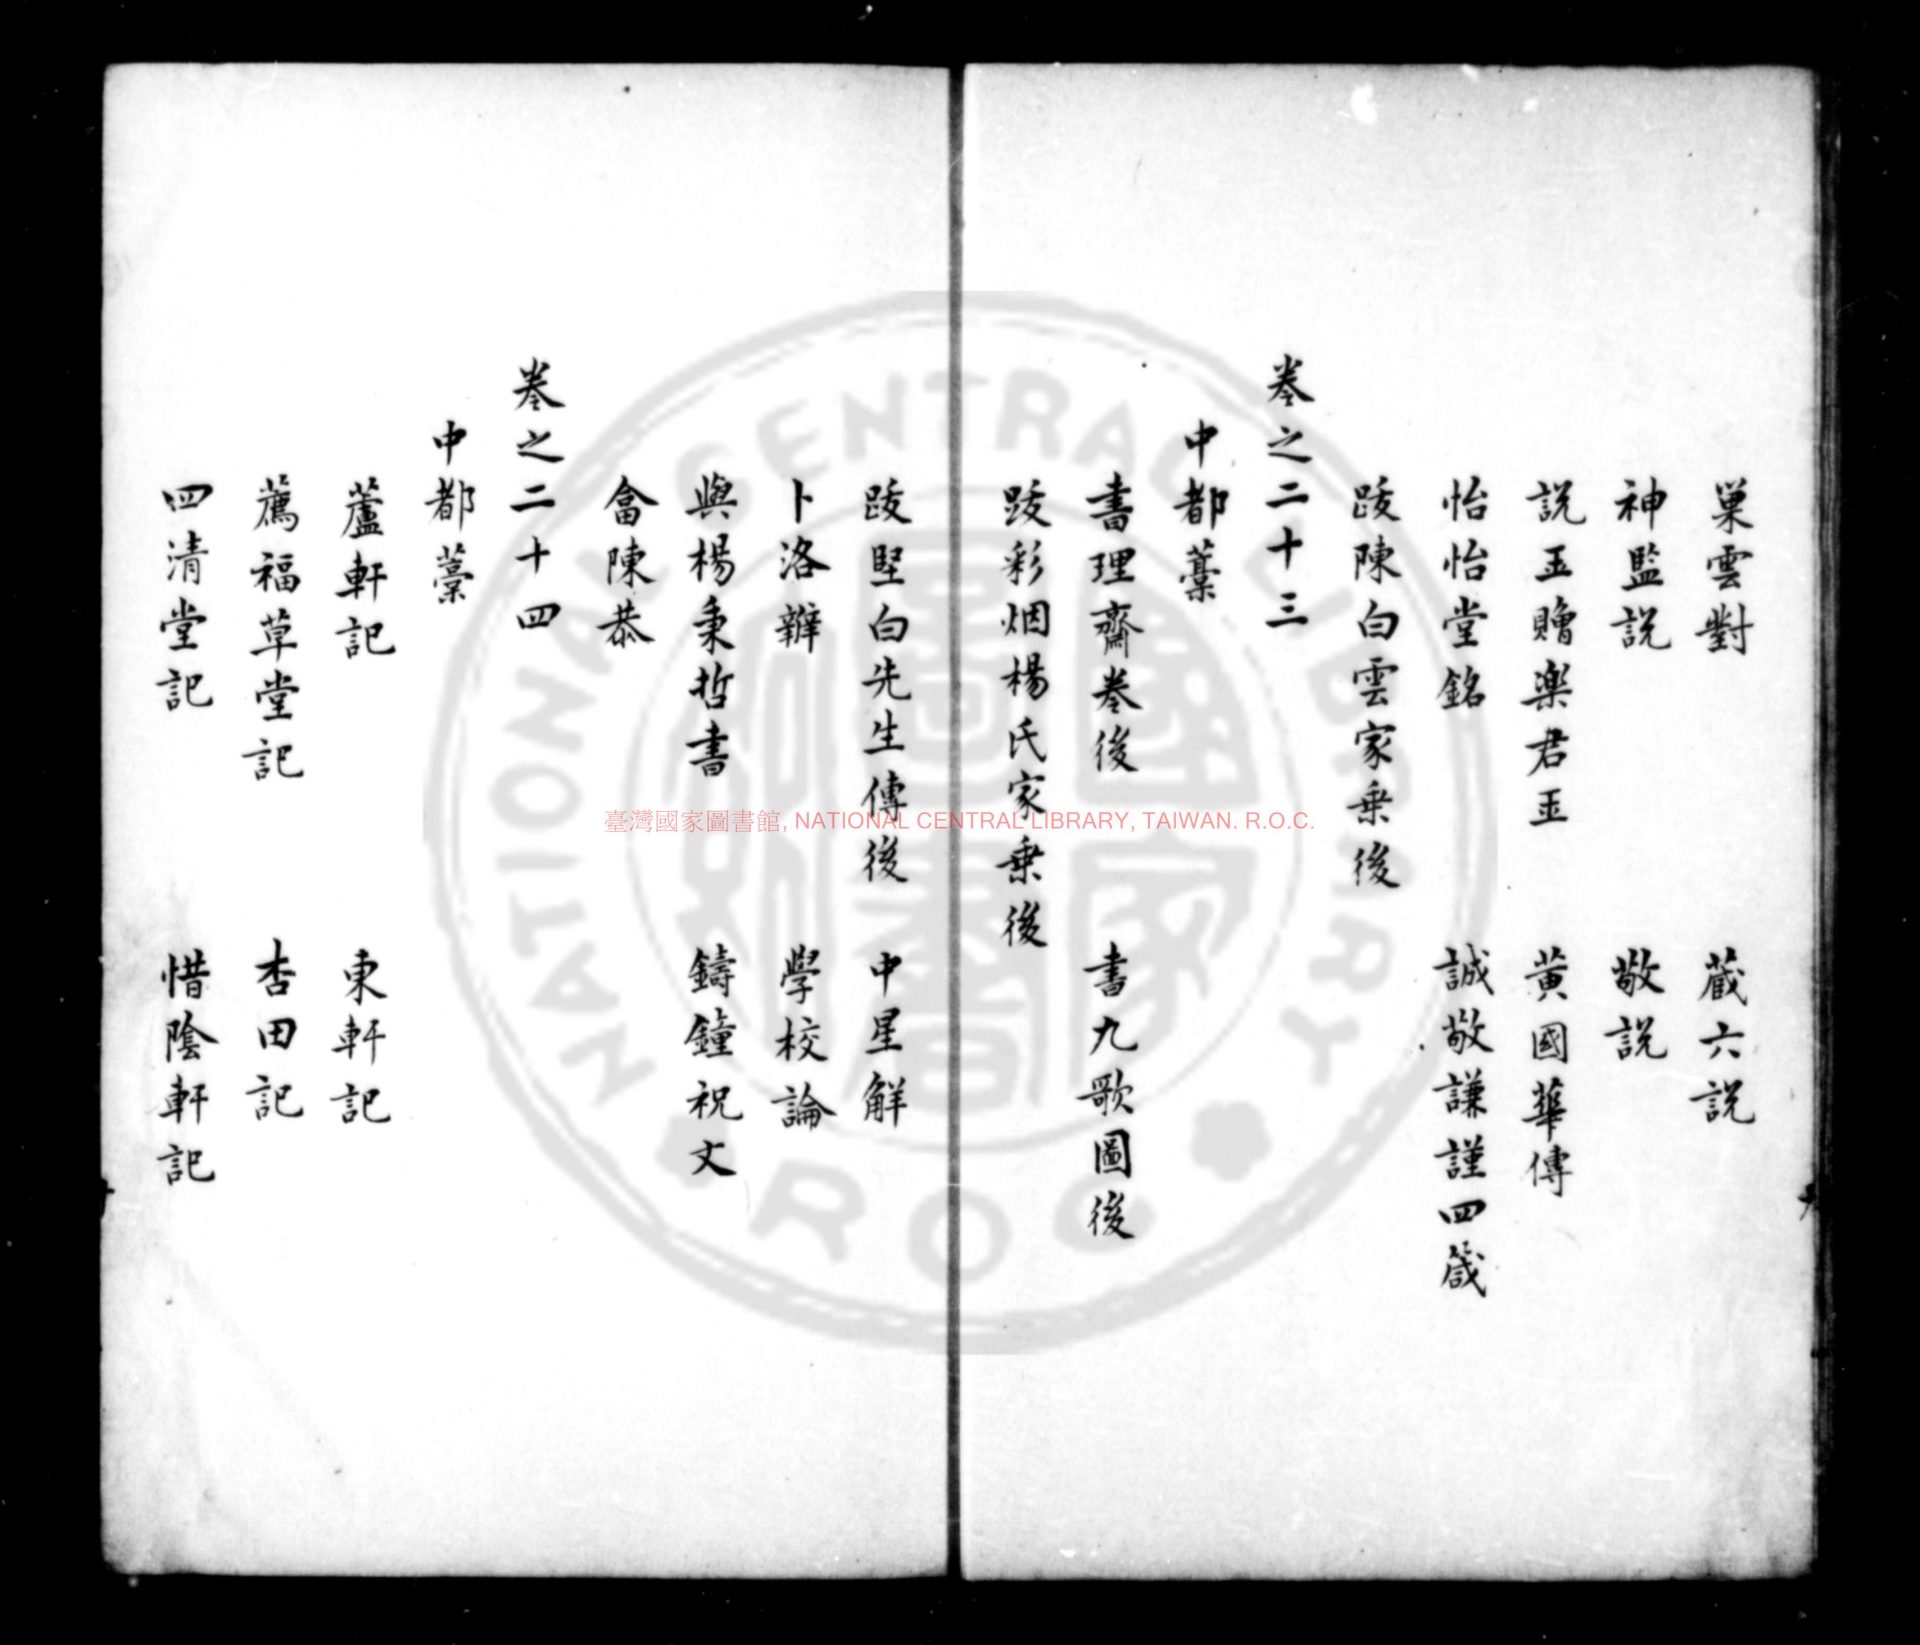 巢雲對　藏六説
神監説　敬説
説玉贈樂君玉　黄國華傳
怡怡堂銘　誠敬謙謹四箴
跋陳白雲家乗後
卷之二十三
中都藁
書理齋卷後　書九歌圖後
跋彩烟楊氏家乗後
跋堅白先生傳後　中星解
卜洛辯　學校論
與楊秉哲書　鑄鐘祝文
畣陳恭
卷之二十四
中都藁
蘆軒記　東軒記
薦福草堂記　杏田記
四清堂記　惜隂軒記
臺灣國家圖書館, NATIONAL CENTRAL LIBRARY, TAIWAN. R.O.C.
NATIONAL CENTRAL LIBRARY
R O C
國家圖書館